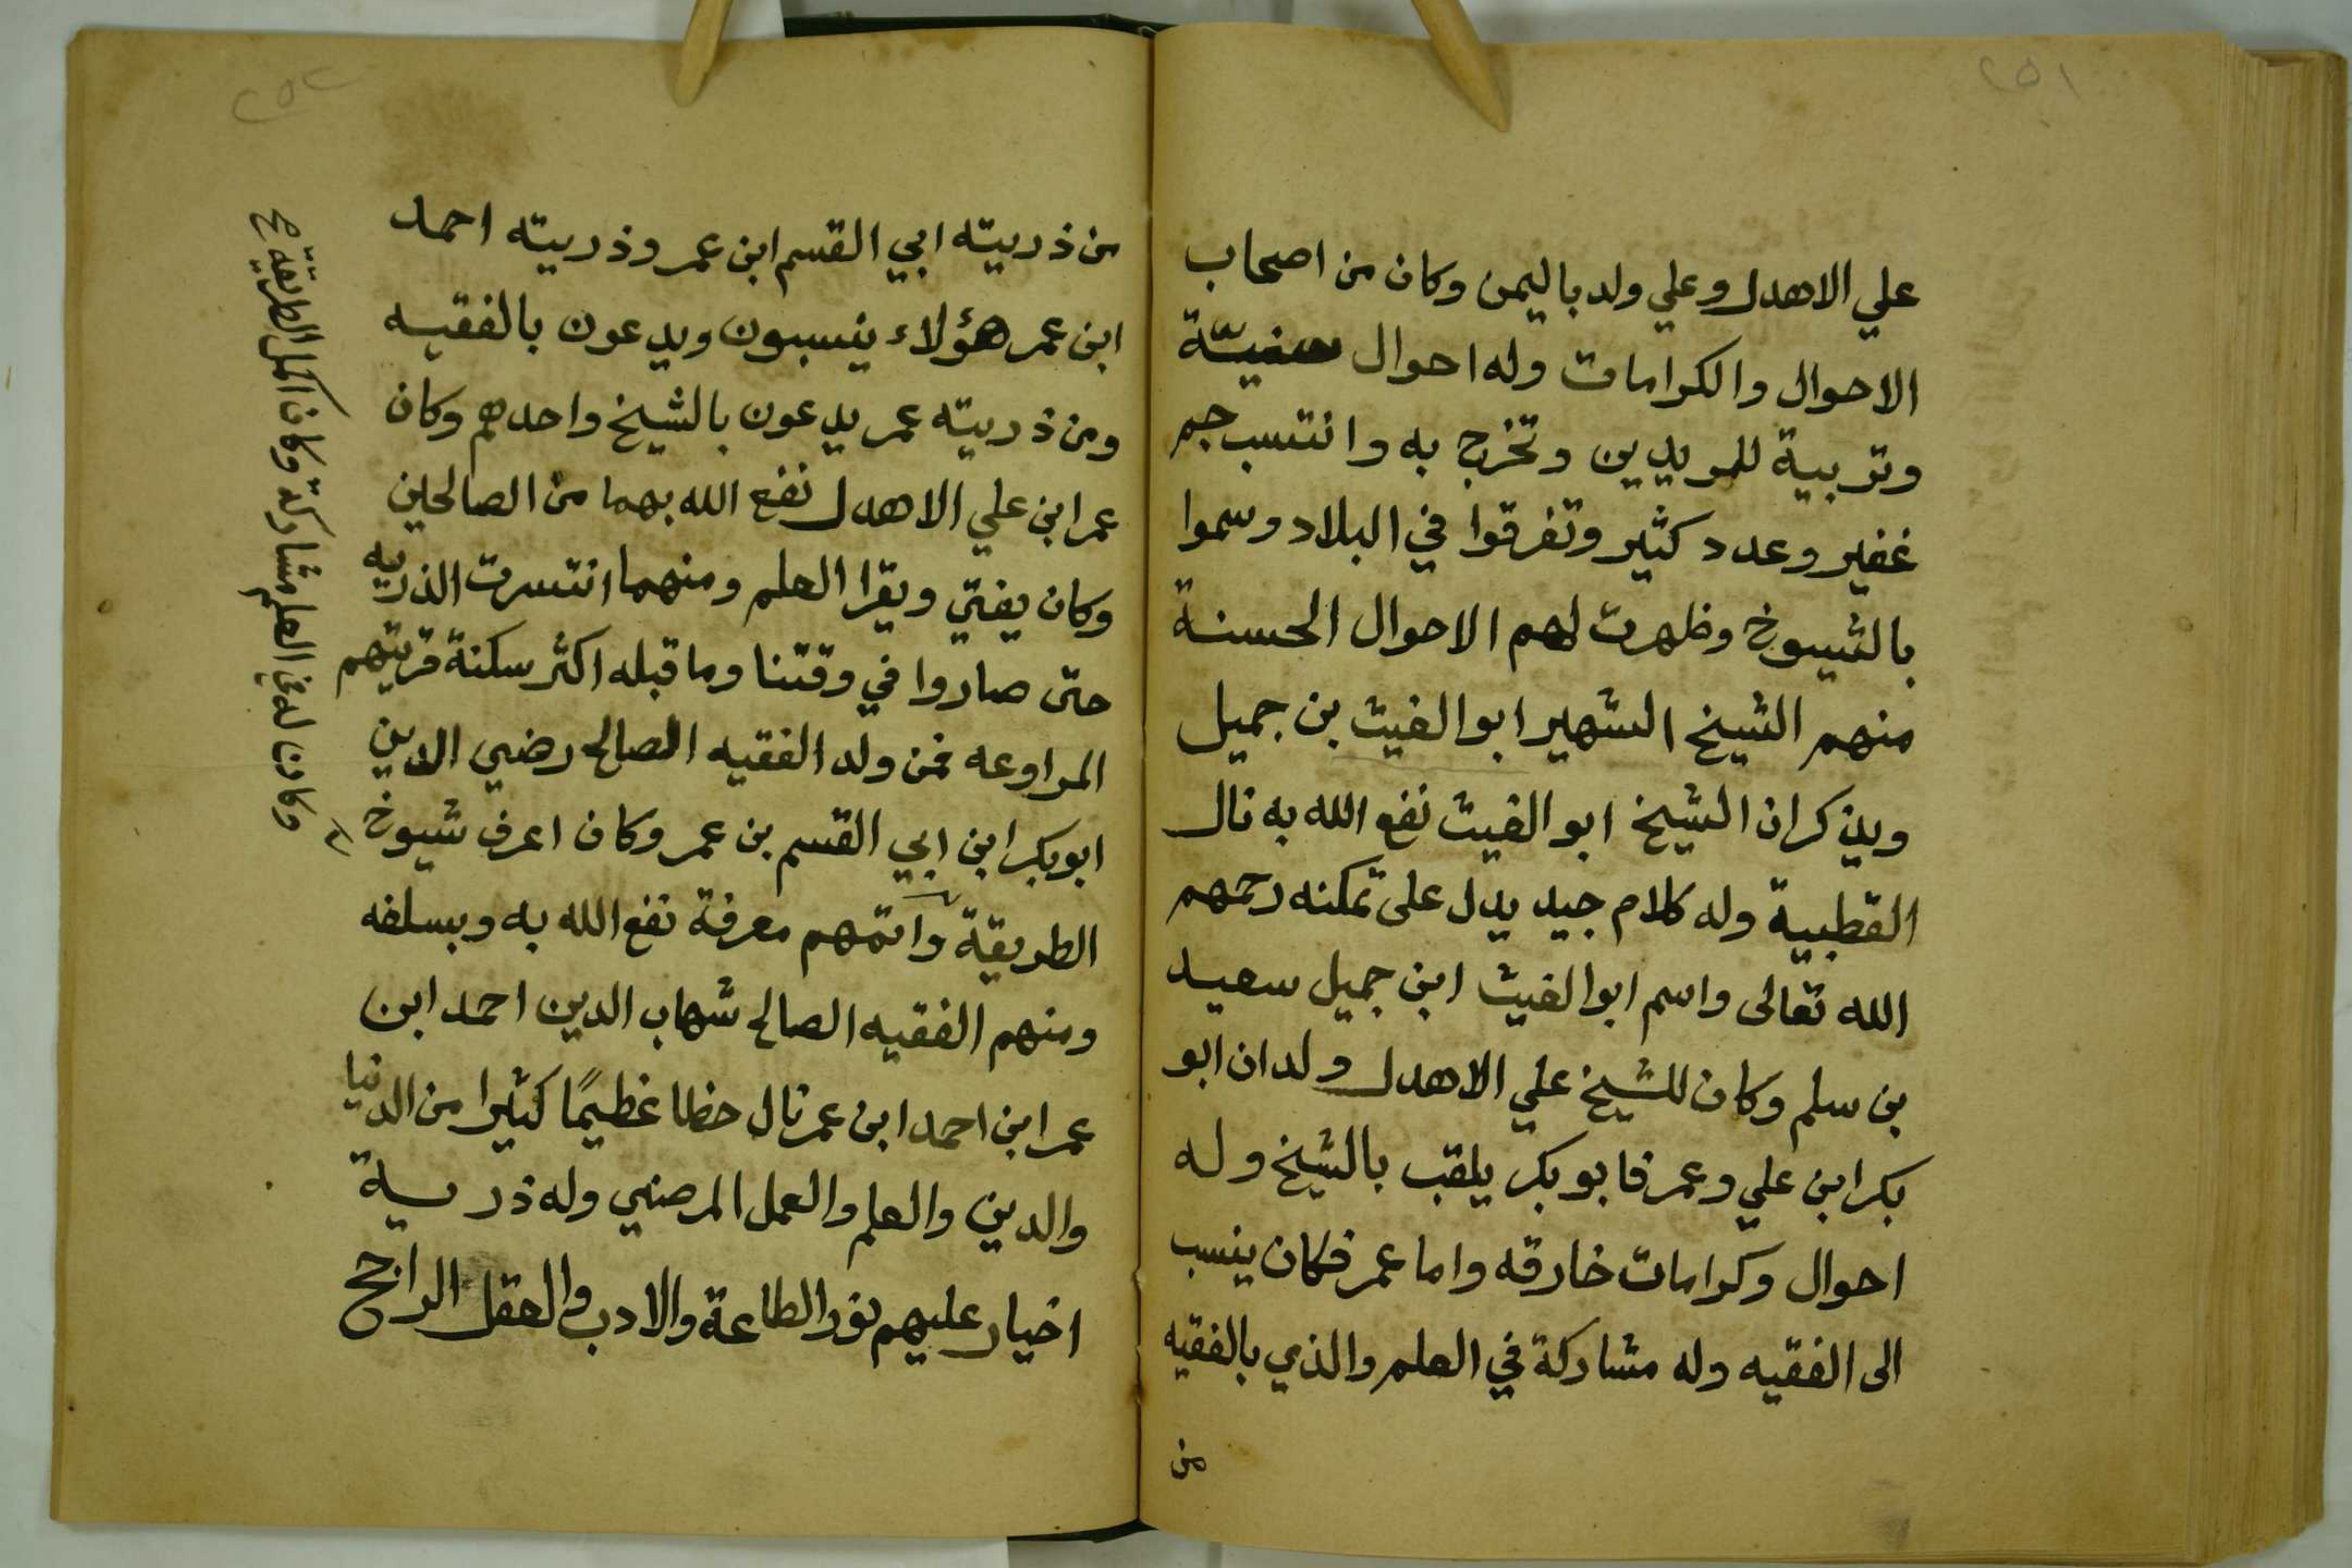 ٢٥١
علي الاهدل وعلي ولد باليمن وكان من اصحاب
الاحوال والكرامات وله احوال سنيّة
وتربية للمريدين وتخرج به وانتسب جم
غفير وعدد كثير وتفرقوا في البلاد وسموا
بالشيوخ وظهرت لهم الاحوال الحسنة
منهم الشيخ الشهير ابو الغيث بن جميل
ويذكر ان الشيخ ابو الغيث نفع الله به نال
القطبية وله كلام جيد يدل على تمكنه رحمهم
الله تعالى واسم ابو الغيث ابن جميل سعيد
بن سلم وكان للشيخ علي الاهدل ولدان ابو
بكر ابن علي وعمر فابو بكر يلقب بالشيخ وله
احوال وكرامات خارقه واما عمر فكان ينسب
الى الفقيه وله مشاركة في العلم والذي بالفقيه
من
٢٥٢
من ذريته ابي القسم ابن عمر وذريته احمد
ابن عمر هؤلاء ينسبون ويدعون بالفقيه
ومن ذريته عمر يدعون بالشيخ واحدهم وكان
عمر ابن علي الاهدل نفع الله بهما من الصالحين
وكان يفتي ويقرا العلم ومنهما انتسرت الذريه
حتى صاروا في وقتنا وما قبله اكثر سكنة قريتهم
المراوعه فمن ولد الفقيه الصالح رضي الدين
ابوبكر ابن ابي القسم بن عمر وكان اعرف شيوخ
الطريقة واتمهم معرفة نفع الله به وبسلفه
ومنهم الفقيه الصالح شهاب الدين احمد ابن
عمر ابن احمد ابن عمر نال حظا عظيمًا كثيرا من الدنيا
والدين والعلم والعمل المرضي وله ذرية
اخيار عليهم نور الطاعة والادب والعقل الراجح
وكان له في العلم مشاركة وكان اكمل الطريقة